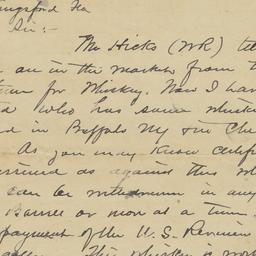 ngsford Fla
Sir:-
Mr Hicks (WR) tel
an in the market from t
for Whiskey. Now I hav
d who has some whisk
d in Buffalo NY
As you may know certifi
issued as against this wh
can be withdrawn in any
Barrel or more at a time.
payment of the U.S. Revenue
This whiskey is